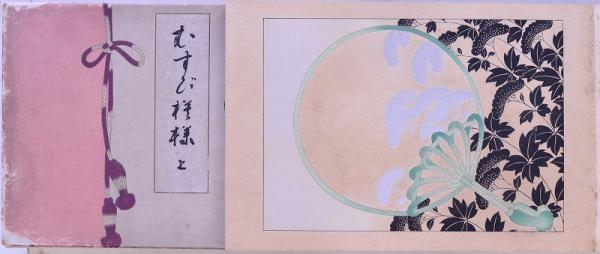 むすび模様 上